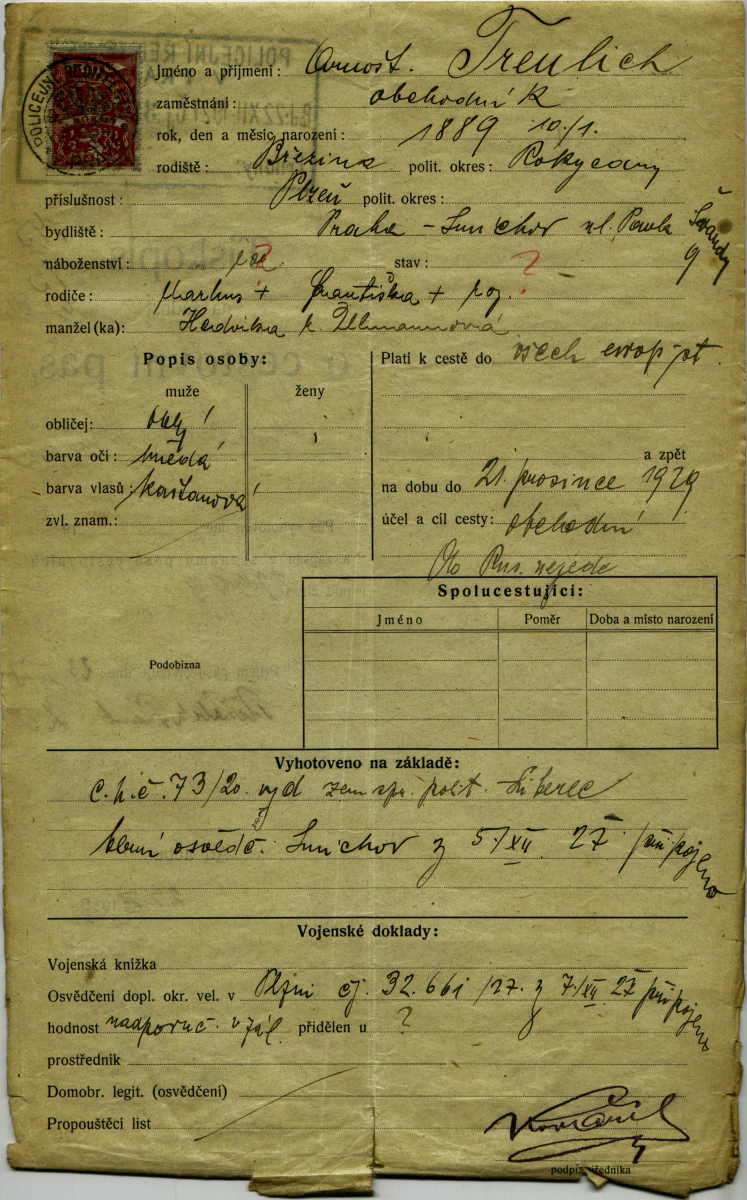 POLICEJNÍ ŘE
Jméno a příjmení: Arnošt. Treulich
zaměstnání: obchodník
rok, den a měsíc narození: 1889 10/1.
rodiště: Březina polit. okres: Rokycany
příslušnost: Plzeň polit. okres:
bydliště: Praha – Smíchov ul. Pavla Švandy 9
náboženství: ? stav: ?
rodiče: Markus + Františka + roz.
manžel(ka): Hedvika r.
Popis osoby:
Platí k cestě do všech evrop. st.
muže ženy
obličej: oblý
barva očí: hnědá
a zpět
barva vlasů: kaštanová
na dobu do 21. prosince 1929
zvl. znam.:
účel a cíl cesty: obchodní
Do Rus. nejede
Spolucestující:
Jméno Poměr Doba a místo narození
Podobizna
Vyhotoveno na základě:
c. p. č. 73/20 vyd zem spr. polit. Liberec
osvědč. Smíchov z 5/XII. 27 připojeno
Vojenské doklady:
Vojenská knížka
Osvědčení dopl. okr. vel. v Plzni čj. 32.661/27. z 7/XII 27 připojeno
hodnost nadporuč. v zál. přidělen u ?
prostředník
Domobr. legit. (osvědčení)
Propouštěcí list
podpis úředníka